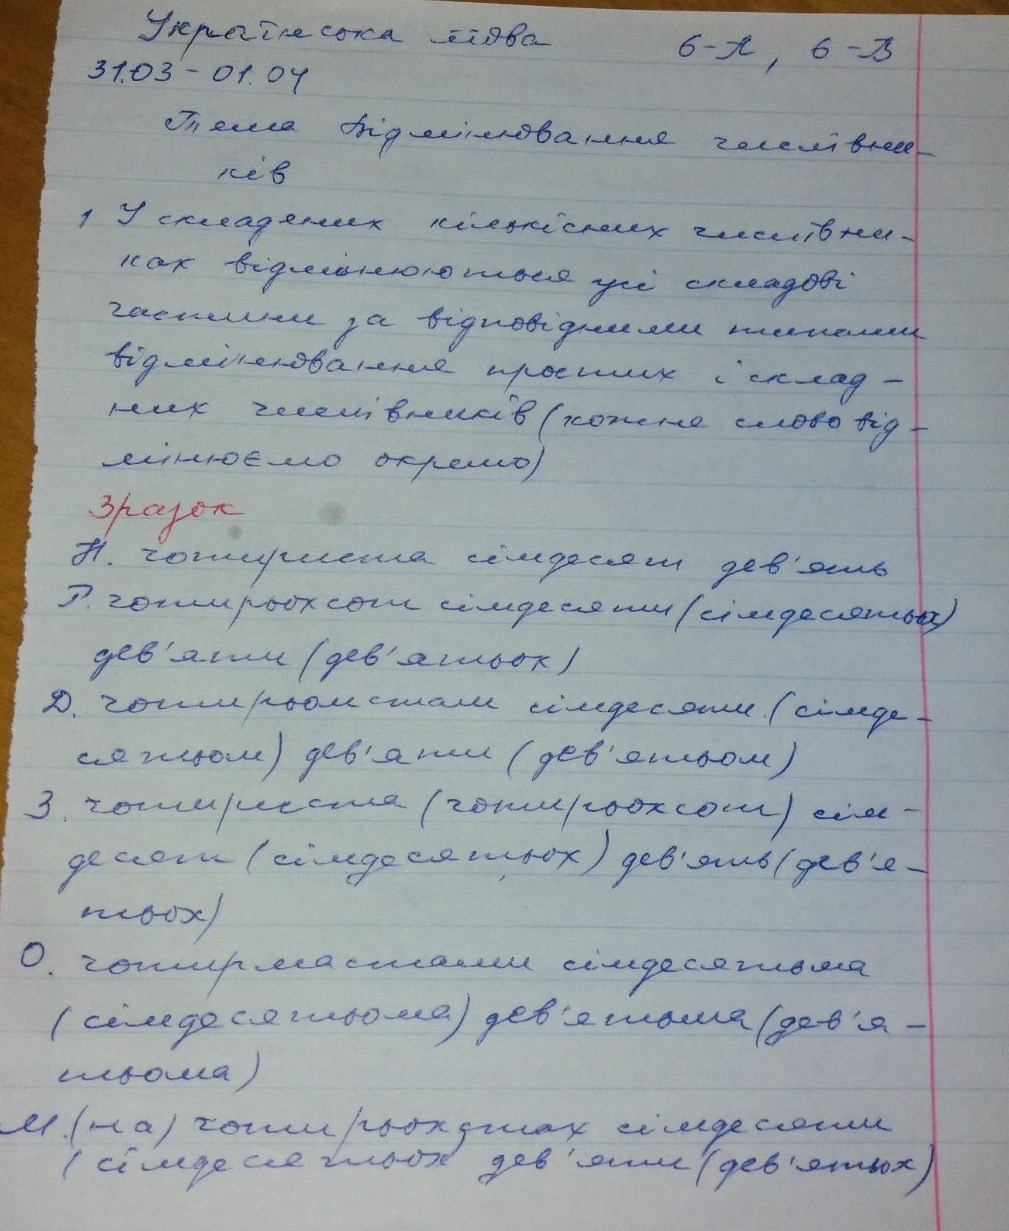 Українська мова 6-А, 6-В
31.03-01.04
Тема Відмінювання числівни-
ків
1 У складених кількісних числівни-
ках відмінюються усі складові
частини за відповідними типами
відмінювання простих і склад-
них числівників (кожне слово від-
мінюємо окремо)
Зразок
Н. чотириста сімдесят дев'ять
Р. чотирьохсот сімдесяти (сімдесятьох)
дев'яти (дев'ятьох)
Д. чотирьомстам сімдесяти (сімде-
сятьом) дев'яти (дев'ятьом)
З. чотириста (чотирьохсот) сім-
десят (сімдесятьох) дев'ять (дев'я-
тьох)
О. чотирмастами сімдесятьма
(сімдесятьома) дев'ятьма (дев'я-
тьома)
М. (на) чотирьохстах сімдесяти
(сімдесятьох дев'яти (дев'ятьох)